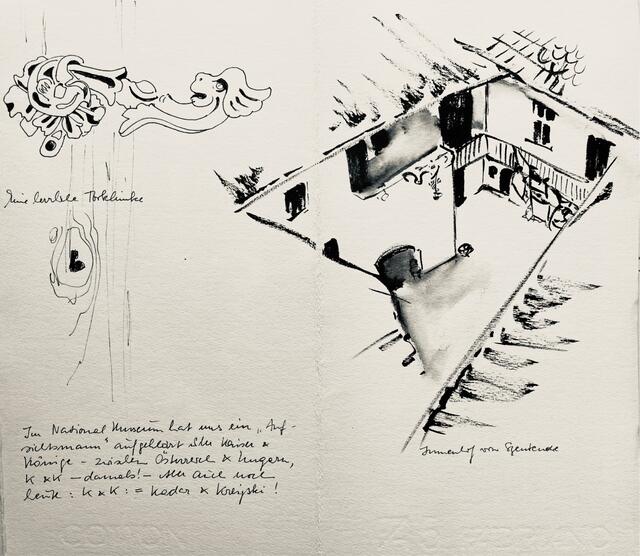 Eine Torklinke
Im National Museum hat uns ein „Auf-
sichtsmann" aufgeklärt über Kaiser &
Könige - zwischen Österreich & Ungarn,
K & K - damals! - aber auch noch
heute: K & K: = Kadar & Kreiski!
Innenhof von